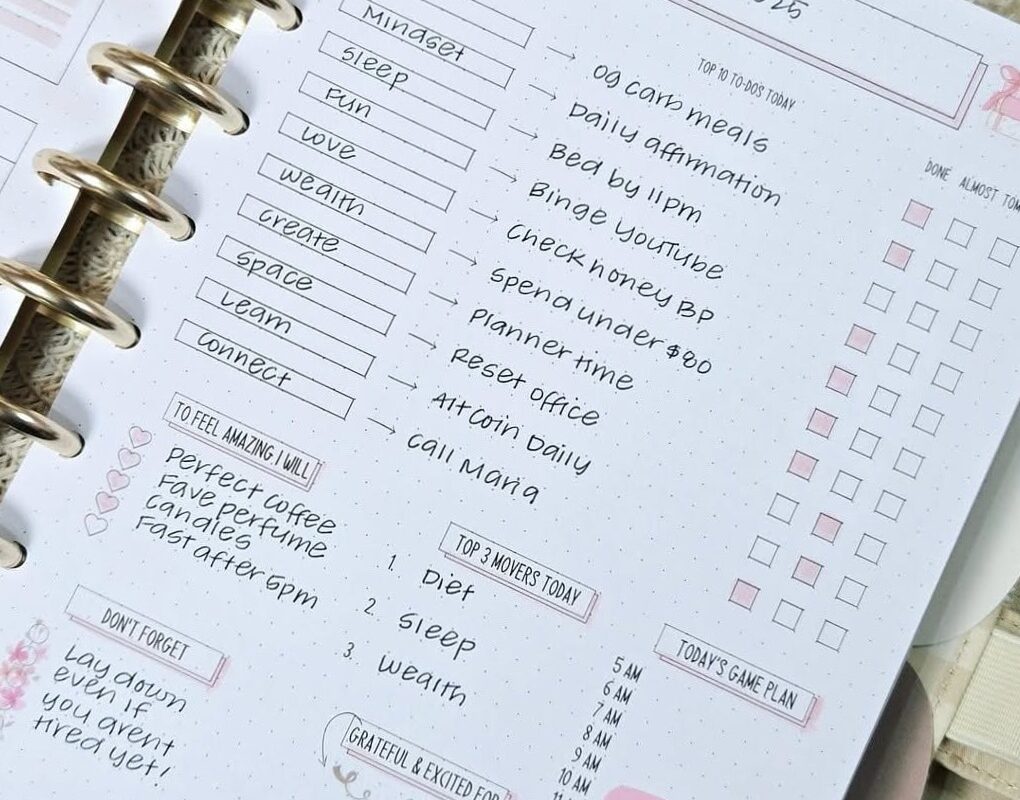 25
TOP 10 TO-DO'S TODAY
DONE ALMOST TOM
0g carb meals
Mindset
Daily affirmation
Sleep
Bed by 11pm
Fun
Binge YouTube
Love
Check honey BP
Wealth
Spend under $80
Create
Planner time
Space
Reset office
Learn
Alt Coin Daily
Connect
Call Maria
TO FEEL AMAZING I WILL
Perfect coffee
Fave perfume
Candles
Fast after 5pm
TOP 3 MOVERS TODAY
1. Diet
2. Sleep
3. Wealth
DON'T FORGET
Lay down
even if
you arent
tired yet!
TODAY'S GAME PLAN
5 AM
6 AM
7 AM
8 AM
9 AM
10 AM
GRATEFUL & EXCITED FOR